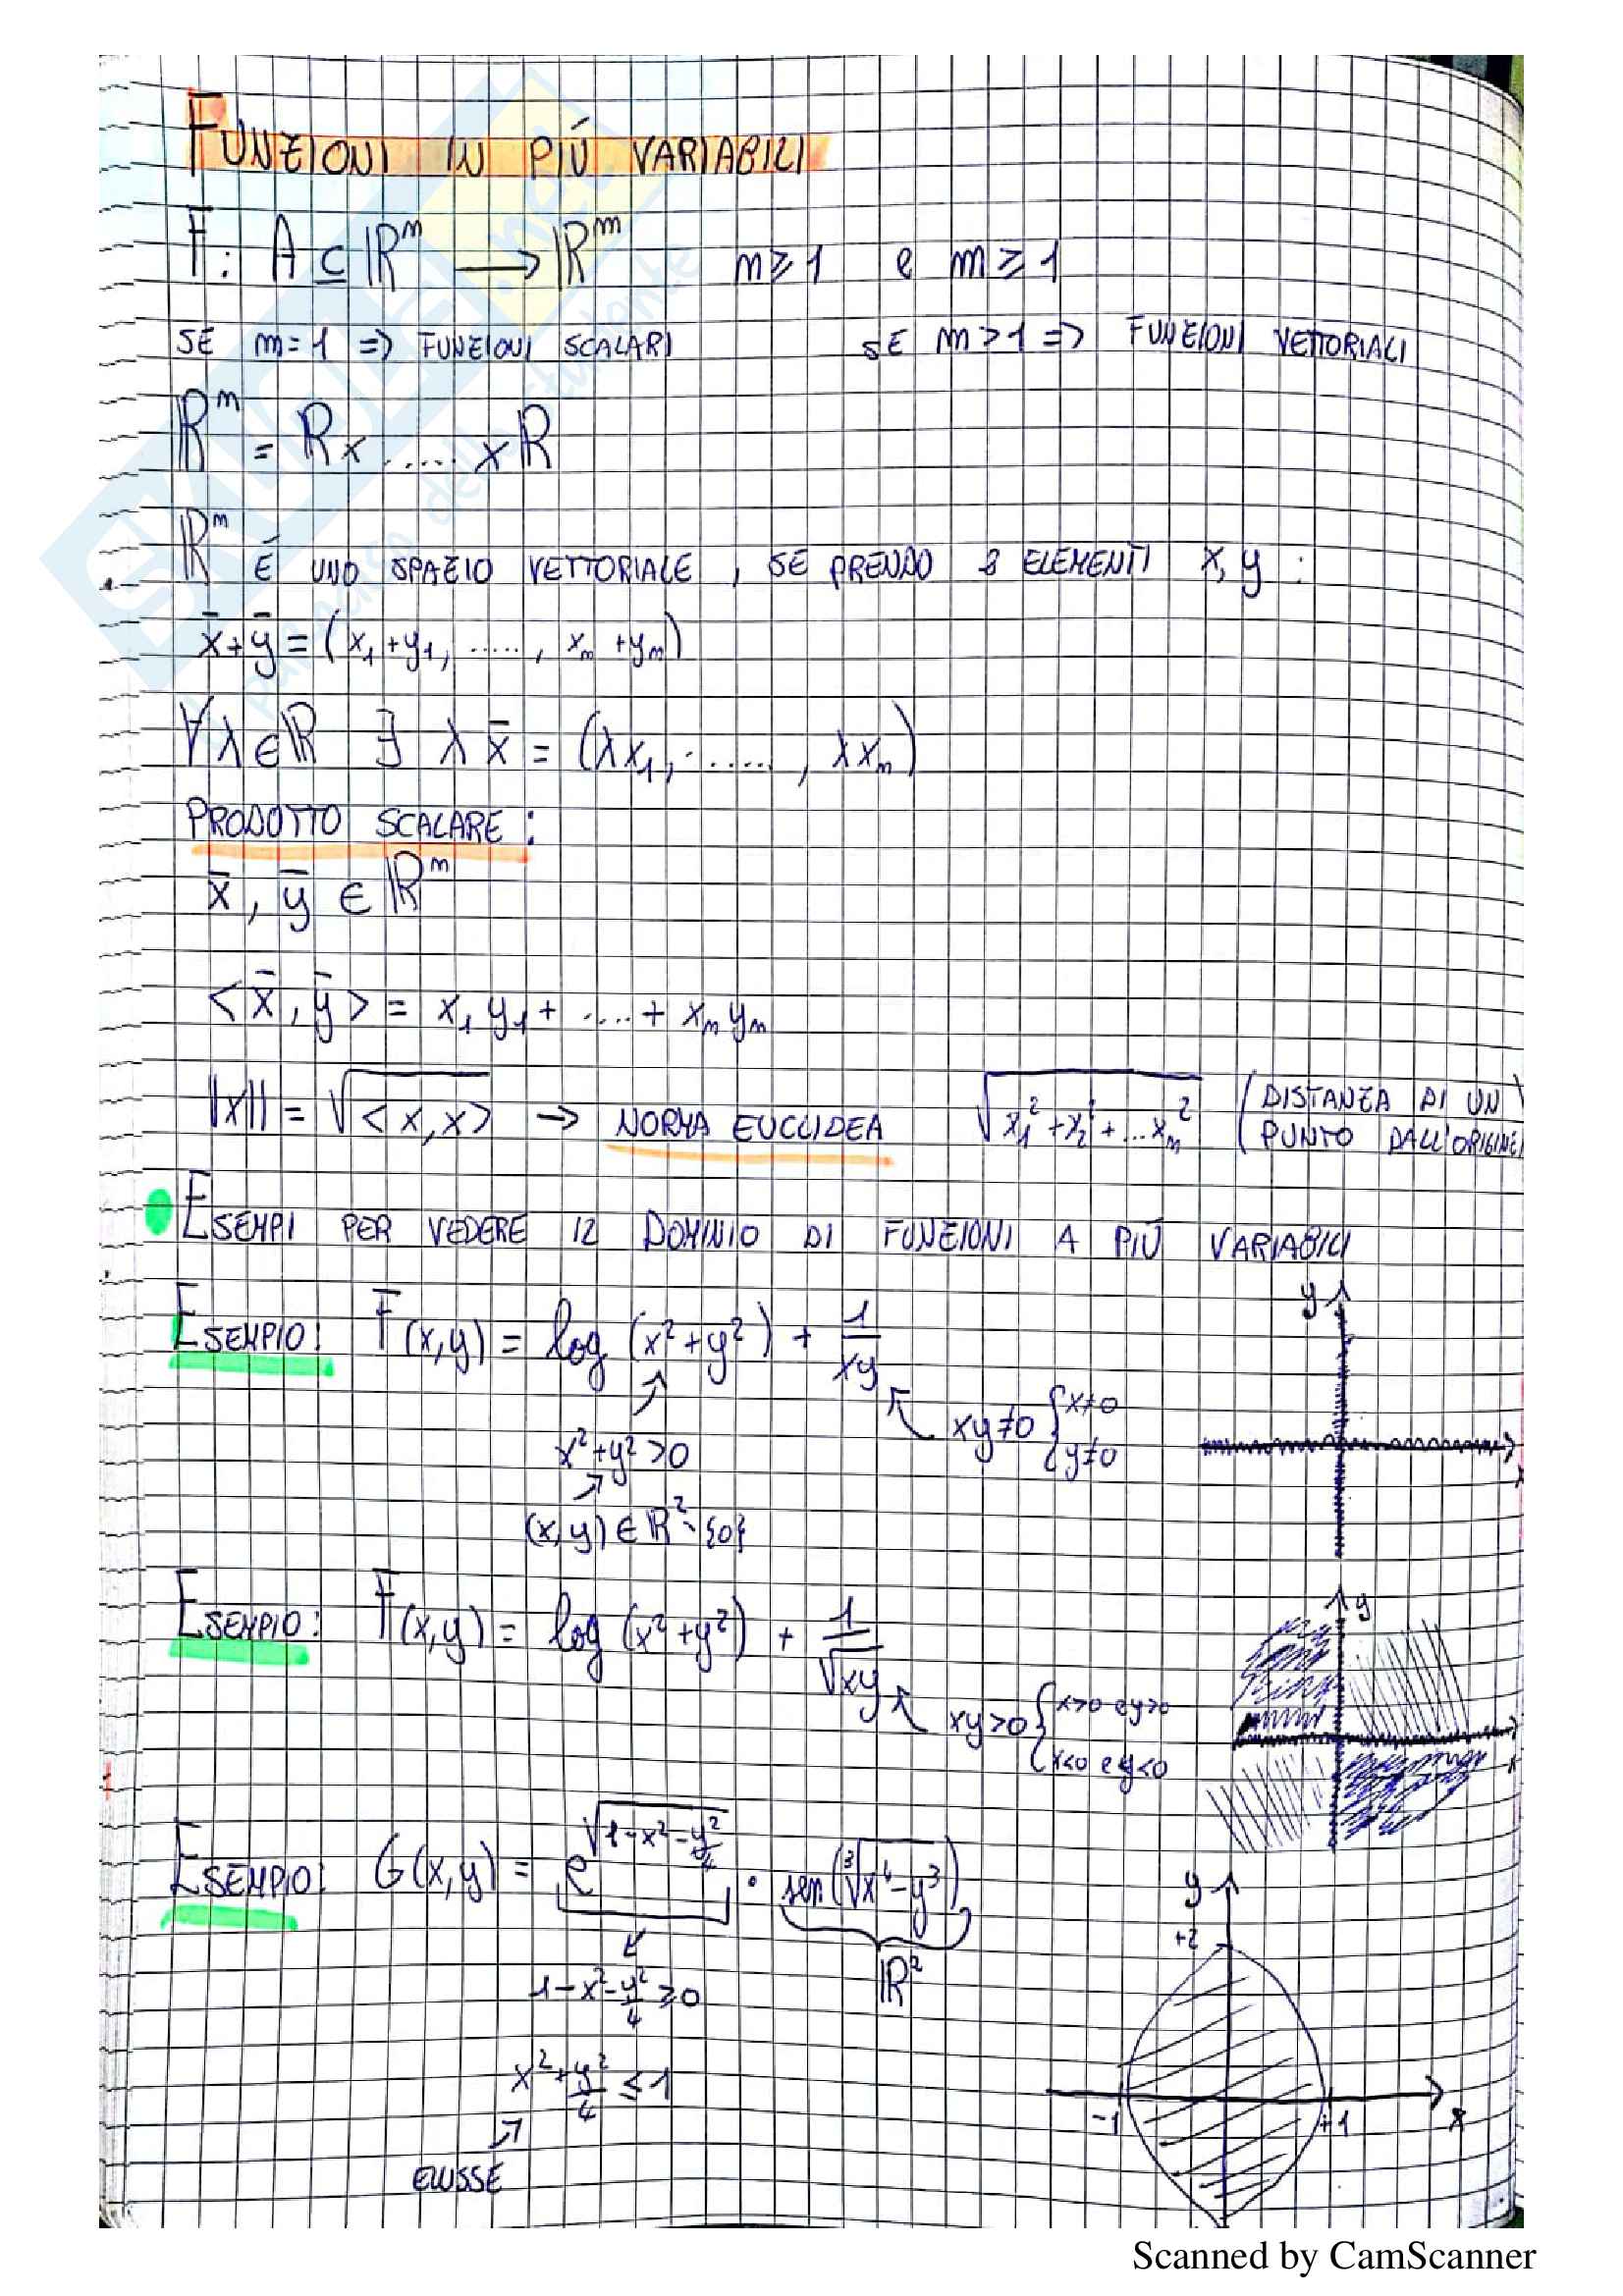 FUNZIONI IN PIÚ VARIABILI
F: A ⊆ ℝⁿ → ℝᵐ n ≥ 1 e m ≥ 1
SE m = 1 => FUNZIONI SCALARI SE m > 1 => FUNZIONI VETTORIALI
ℝⁿ = ℝ x ..... x ℝ
ℝⁿ É UNO SPAZIO VETTORIALE, SE PRENDO 2 ELEMENTI x, y :
x̄ + ȳ = (x₁ + y₁, ....., xₙ + yₙ)
∀ λ ∈ ℝ ∃ λ x̄ = (λx₁, ......, λxₙ)
PRODOTTO SCALARE :
x̄ , ȳ ∈ ℝⁿ
< x̄ , ȳ > = x₁ y₁ + .... + xₙ yₙ
||x|| = √<x, x> → NORMA EUCLIDEA √x₁² + x₂² + ... xₙ² (DISTANZA DI UN PUNTO DALL'ORIGINE)
ESEMPI PER VEDERE IL DOMINIO DI FUNZIONI A PIÚ VARIABILI
ESEMPIO: F(x,y) = log (x² + y²) + 1/xy
y
xy ≠ 0 { x ≠ 0
y ≠ 0
x
x² + y² > 0
(x, y) ∈ ℝ² - {0}
ESEMPIO: F(x,y) = log (x² + y²) + 1/√xy
y
xy > 0 { x > 0 e y > 0
x < 0 e y < 0
x
ESEMPIO: G(x,y) = e^√(1 - x² - y²/4) · sen (∛x⁴ - y³)
ℝ²
y
+2
1 - x² - y²/4 ≥ 0
x² + y²/4 ≤ 1
-1 +1 x
ELLISSE
SKUOLA.net
paradiso dello studente
Scanned by CamScanner